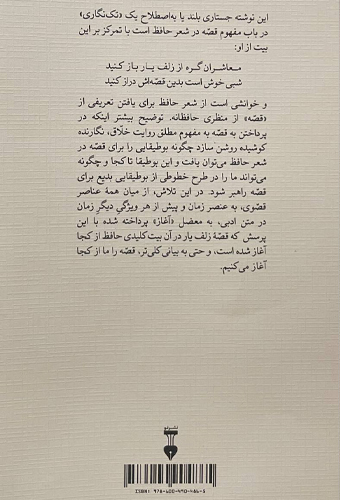 این نوشته جستاری بلند یا به‌اصطلاح یک «تک‌نگاری»
در باب مفهوم قصّه در شعر حافظ است با تمرکز بر این
بیت از او:
معاشران گره از زلف یار باز کنید
شبی خوش است بدین قصّه‌اش دراز کنید
و خوانشی است از شعر حافظ برای یافتن تعریفی از
«قصه» از منظری حافظانه. توضیح بیشتر اینکه در
پرداختن به قصّه به مفهوم مطلق روایت خلّاق، نگارنده
کوشیده روشن سازد چگونه بوطیقایی را برای قصّه در
شعر حافظ می‌توان یافت و این بوطیقا تا کجا و چگونه
می‌تواند ما را در طرح خطوطی از بوطیقایی بدیع برای
قصّه راهبر شود. در این تلاش، از میان همهٔ عناصر
قصّوی، به عنصر زمان و پیش از هر ویژگیِ دیگرِ زمان
در متن ادبی، به معضل «آغاز» پرداخته شده با این
پرسش که قصّهٔ زلف یار در آن بیت کلیدی حافظ از کجا
آغاز شده است، و حتی به بیانی کلی‌تر، قصّه را ما از کجا
آغاز می‌کنیم.
نشر نو